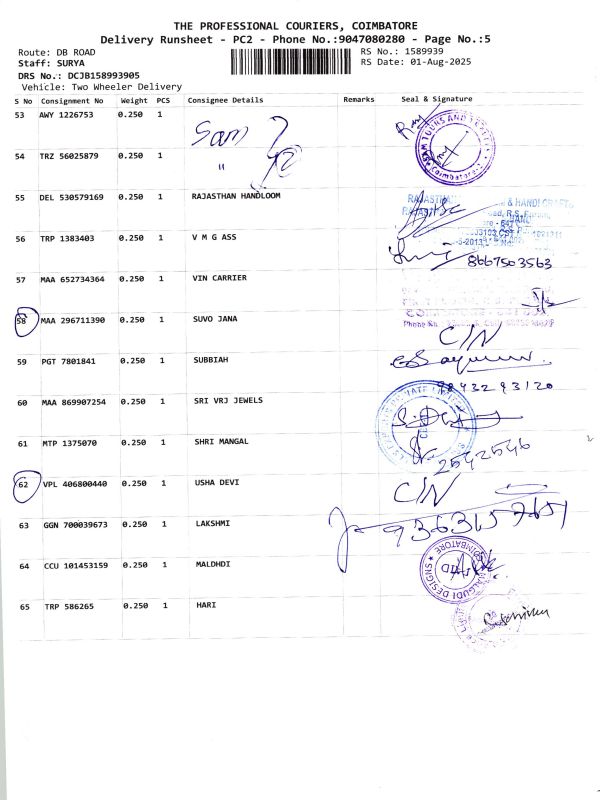 THE PROFESSIONAL COURIERS, COIMBATORE
Delivery Runsheet - PC2 - Phone No.:9047080280 - Page No.:5
Route: DB ROAD RS No.: 1589939
Staff: SURYA RS Date: 01-Aug-2025
DRS No.: DCJB158993905
Vehicle: Two Wheeler Delivery
S No Consignment No Weight PCS Consignee Details Remarks Seal & Signature
53 AWY 1226753 0.250 1 Sam
SAM TOURS AND TRAVELS Coimbatore
54 TRZ 56025879 0.250 1 "
55 DEL 530579169 0.250 1 RAJASTHAN HANDLOOM
RAJASTHAN & HANDICRAFTS
56 TRP 1383403 0.250 1 V M G ASS
8667503563
57 MAA 652734364 0.250 1 VIN CARRIER
58 MAA 296711390 0.250 1 SUVO JANA
Phone No.
C/N
59 PGT 7801841 0.250 1 SUBBIAH
9843293120
60 MAA 869907254 0.250 1 SRI VRJ JEWELS
61 MTP 1375070 0.250 1 SHRI MANGAL
2542546
62 VPL 406800440 0.250 1 USHA DEVI C/N
63 GGN 700039673 0.250 1 LAKSHMI
64 CCU 101453159 0.250 1 MALDHDI
MALGUDI DESIGNS COIMBATORE
65 TRP 586265 0.250 1 HARI